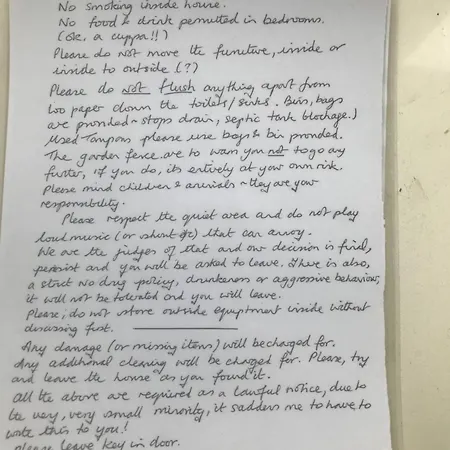 No smoking inside house.
No food & drink permitted in bedrooms.
(OK, a cuppa!!)
Please do not move the furniture, inside or
inside to outside (?)
Please do not flush anything apart from
loo paper down the toilets/sinks. Bins, bags
are provided ~ stops drain, septic tank blockage.)
Used Tampons please use bags & bin provided.
The garden fence are to warn you not to go any
further, if you do, its entirely at your own risk.
Please mind children & animals ~ they are your
responsibility.
Please respect the quiet area and do not play
loud music (or shout etc) that can annoy.
We are the judges of that and our decision is final,
persist and you will be asked to leave. There is also,
a strict No drug policy, drunkeness or aggressive behaviour,
it will not be tolerated and you will leave.
Please; do not store outside equiptment inside without
discussing first.
Any damage (or missing items) will be charged for.
Any additional cleaning will be charged for. Please, try
and leave the house as you found it.
All the above are required as a lawful notice, due to
the very, very small minority, it saddens me to have, to
write this to you!
Please leave key in door.